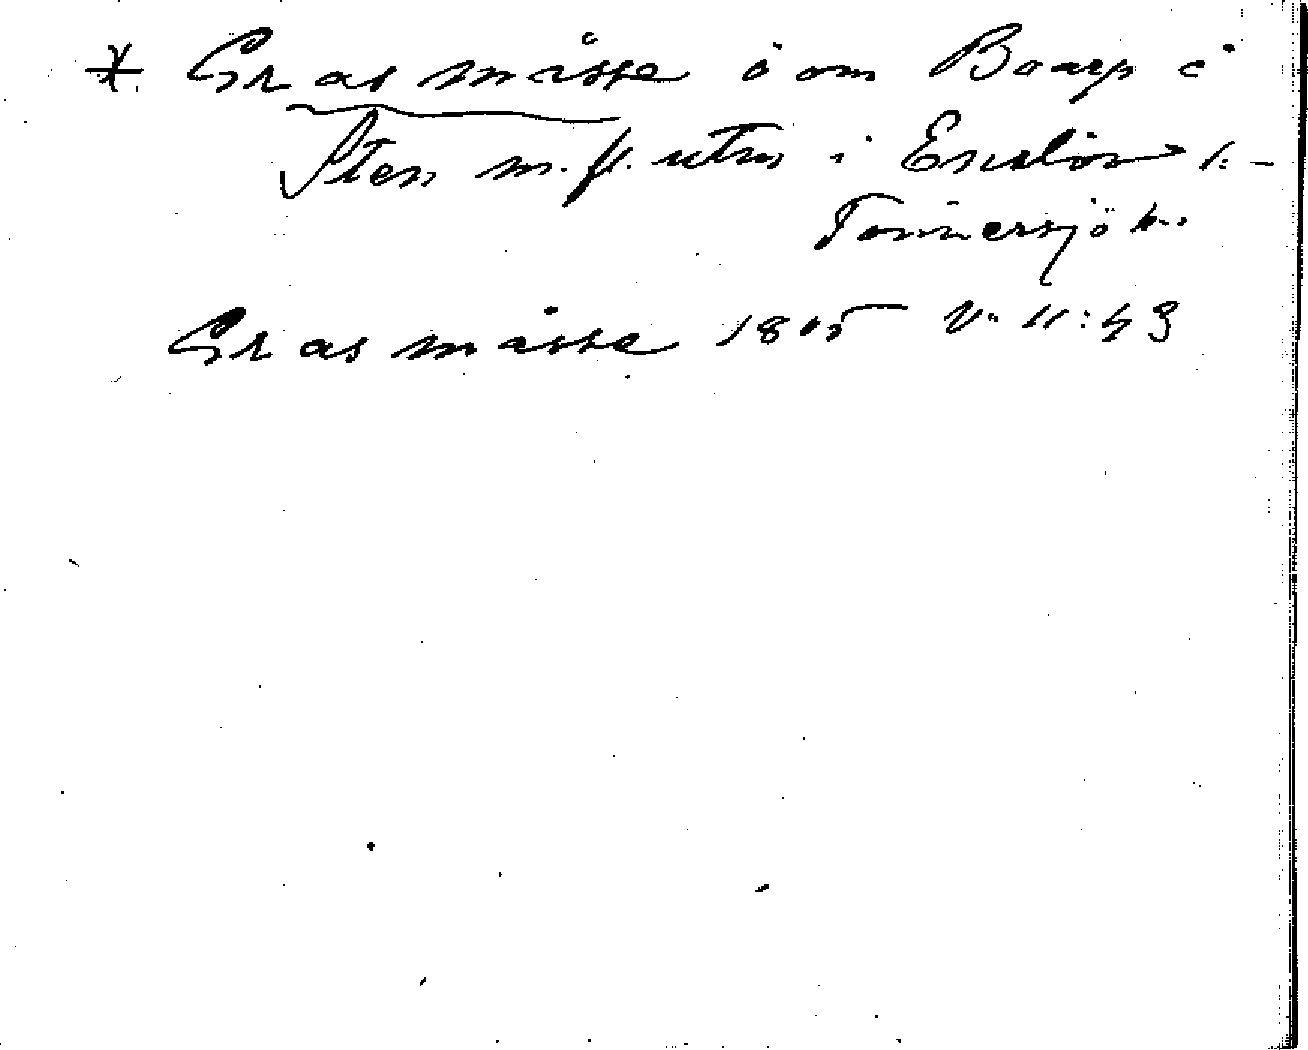 * Grasmåsse ö om Boarp i
Sten m. fl. utm i Enslöv s:-
Tönnersjö h..
Grasmåsse 1805 V. 11:43